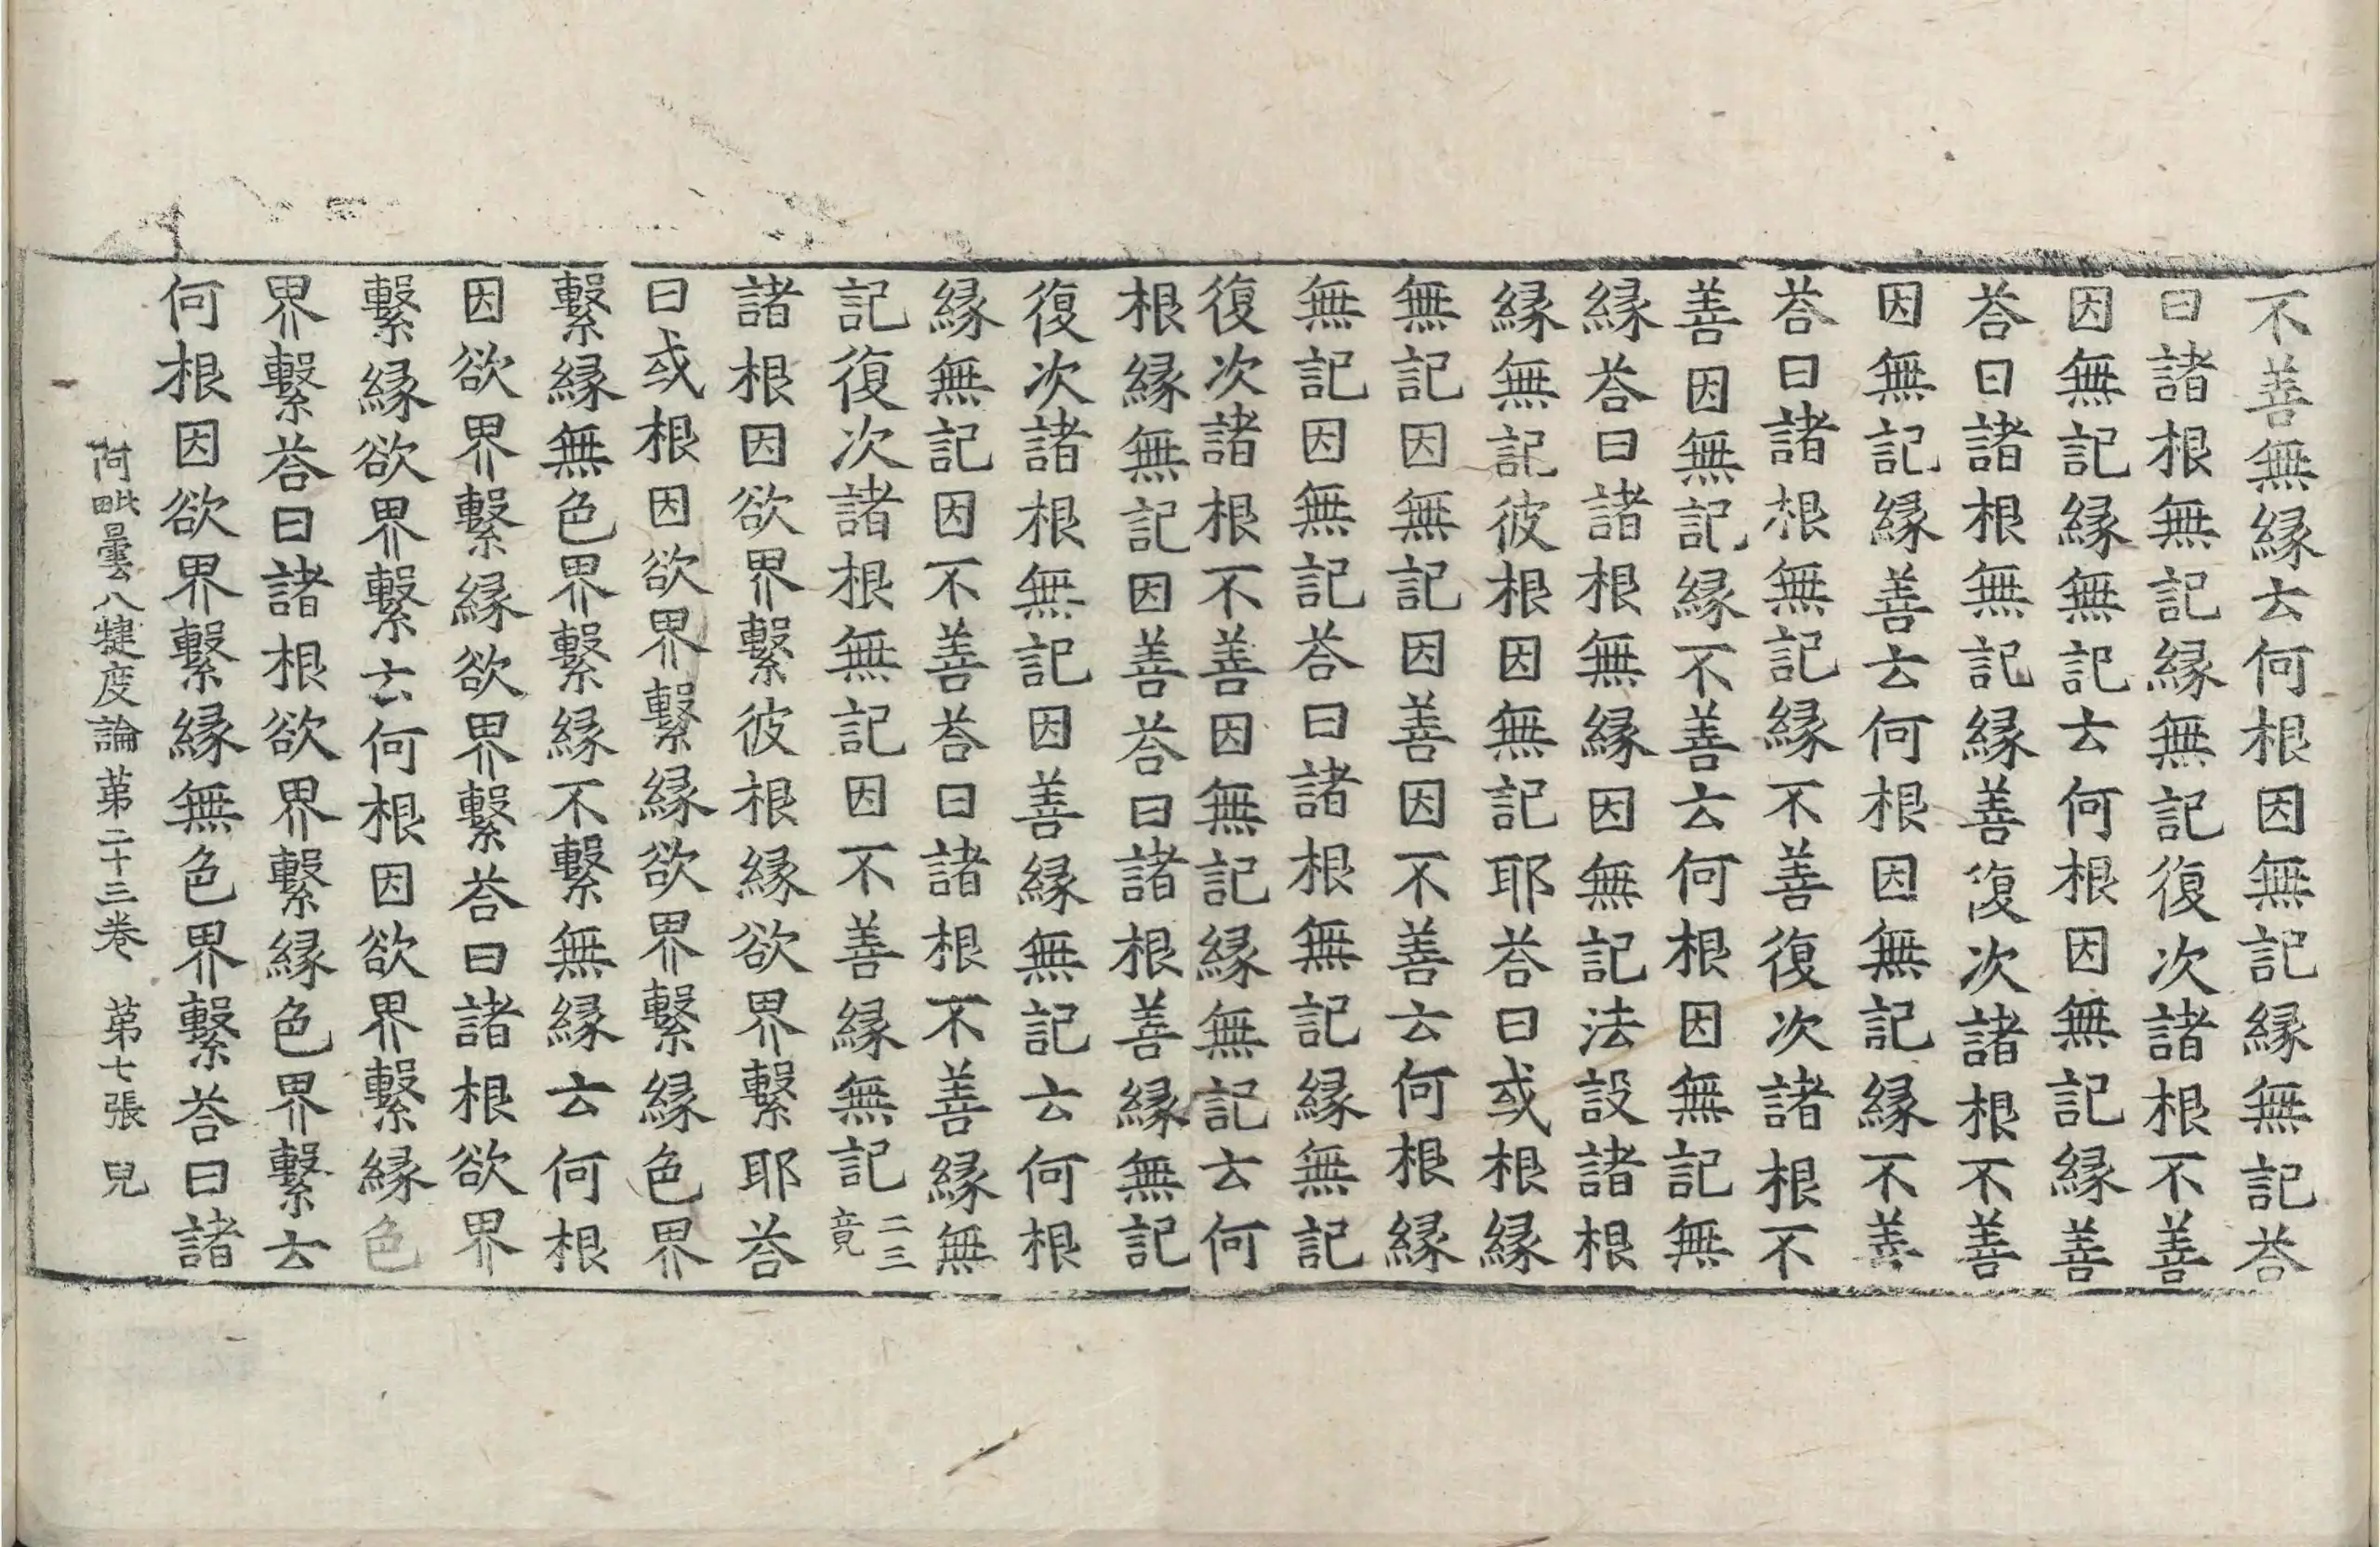 不善無緣云何根因無記緣無記荅
曰諸根無記緣無記復次諸根不善
因無記緣無記云何根因無記緣善
荅曰諸根無記緣善復次諸根不善
因無記緣善云何根因無記緣不善
荅曰諸根無記緣不善復次諸根不
善因無記緣不善云何根因無記無
緣荅曰諸根無緣因無記法設諸根
緣無記彼根因無記耶荅曰或根緣
無記因無記因善因不善云何根緣
無記因無記荅曰諸根無記緣無記
復次諸根不善因無記緣無記云何
根緣無記因善荅曰諸根善緣無記
復次諸根無記因善緣無記云何根
緣無記因不善荅曰諸根不善緣無
記復次諸根無記因不善緣無記二三竟
諸根因欲界繫彼根緣欲界繫耶荅
曰或根因欲界繫緣欲界繫緣色界
繫緣無色界繫緣不繫無緣云何根
因欲界繫緣欲界繫荅曰諸根欲界
繫緣欲界繫云何根因欲界繫緣色
界繫荅曰諸根欲界繫緣色界繫云
何根因欲界繫緣無色界繫荅曰諸
阿毗曇八犍度論第二十三卷 第七張 兒